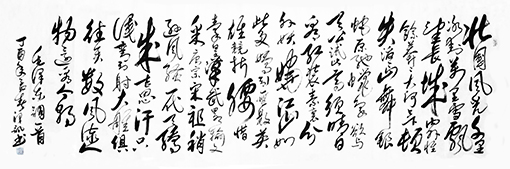 北国风光千里
冰封万里雪飘
望长城内外惟
余莽莽大河上下顿
失滔滔山舞银
蛇原驰蜡象欲与
天公试比高须晴日
看红装素裹分
外妖娆江山如
此多娇引无数英
雄竞折腰惜
秦皇汉武略输文
采唐宗宋祖稍
逊风骚一代天骄
成吉思汗只
识弯弓射大雕俱
往矣数风流人
物还看今朝
毛泽东词一首
丁酉年